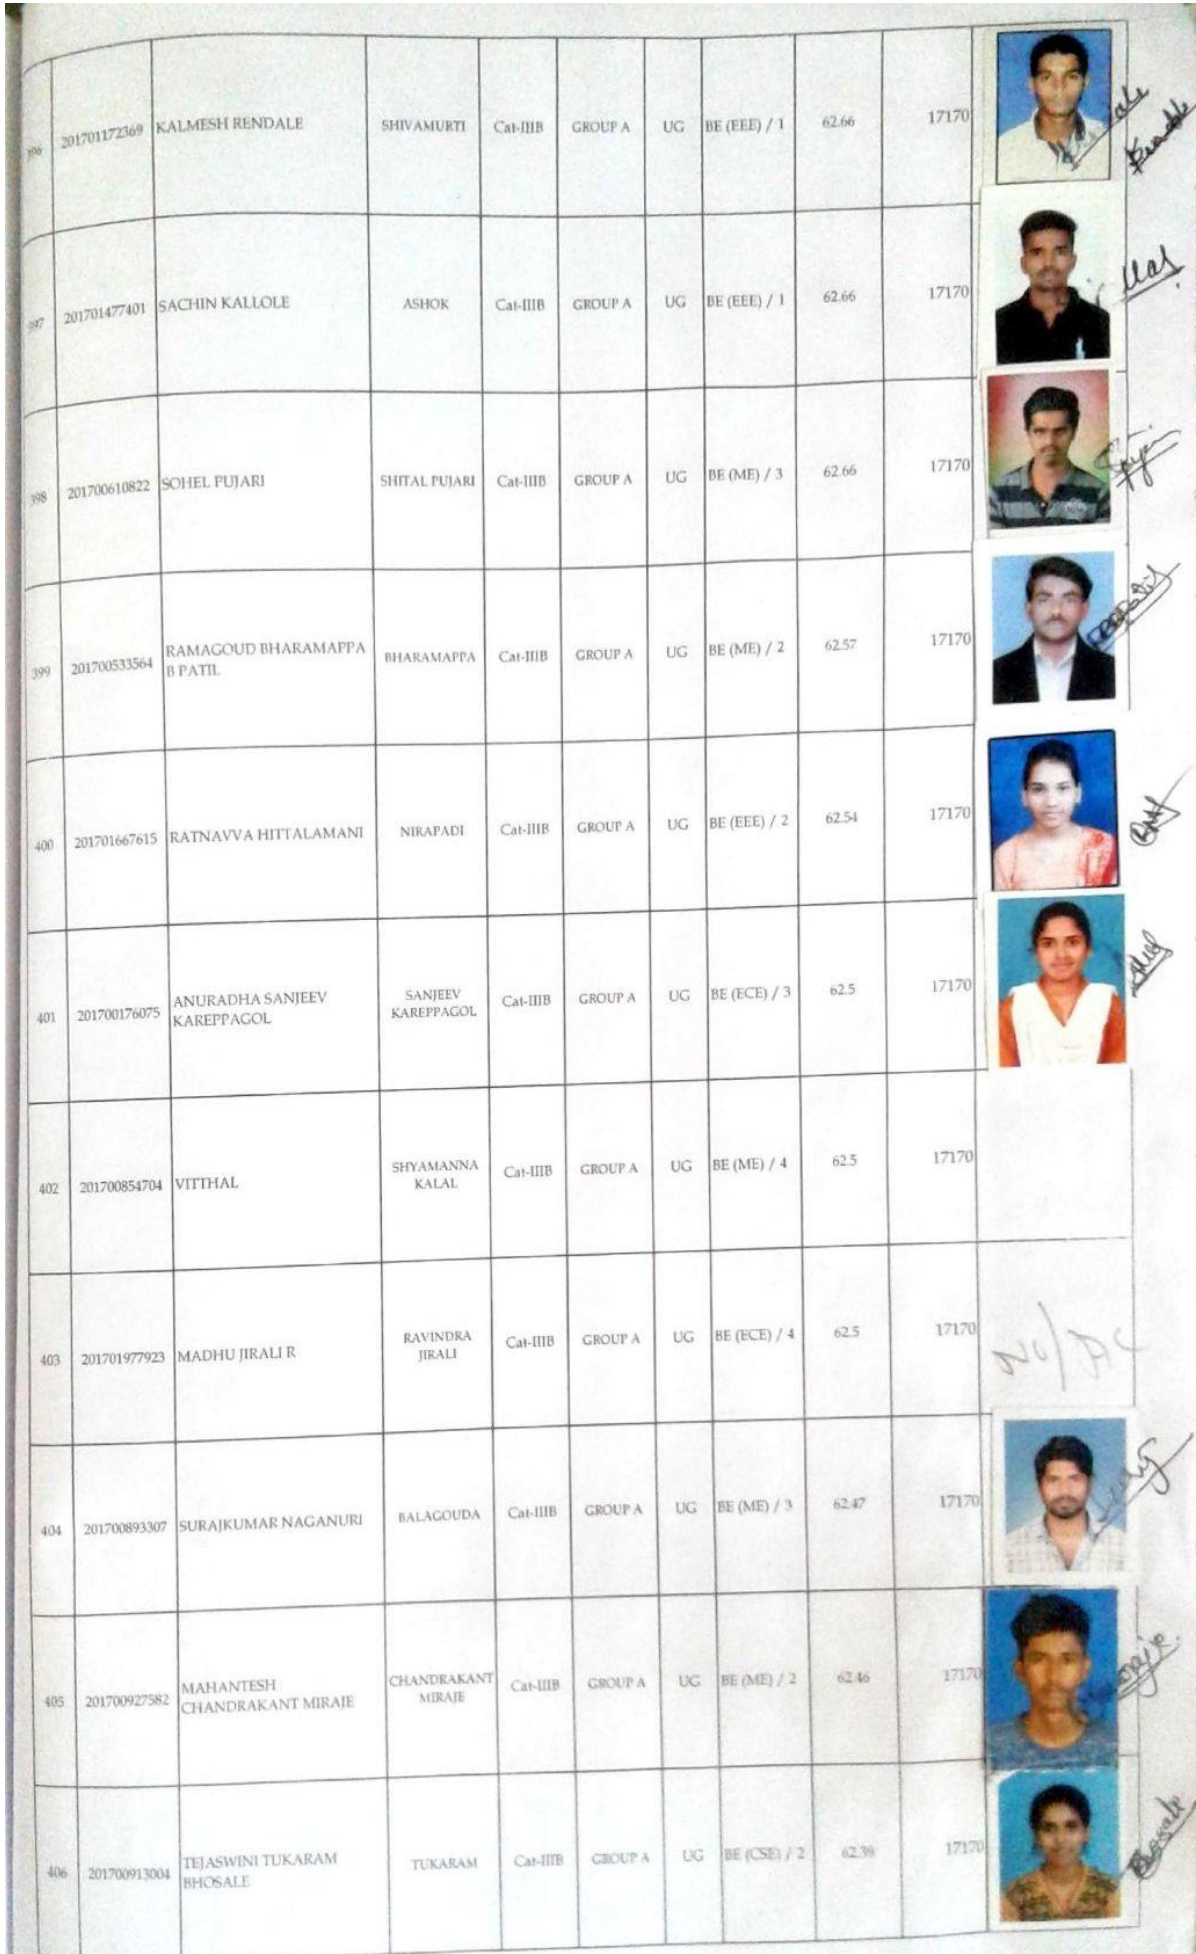 396 201701172369 KALMESH RENDALE SHIVAMURTI Cat-IIIB GROUP A UG BE (EEE) / 1 62.66 17170
397 201701477401 SACHIN KALLOLE ASHOK Cat-IIIB GROUP A UG BE (EEE) / 1 62.66 17170
398 201700610822 SOHEL PUJARI SHITAL PUJARI Cat-IIIB GROUP A UG BE (ME) / 3 62.66 17170
399 201700533564 RAMAGOUD BHARAMAPPA BHARAMAPPA Cat-IIIB GROUP A UG BE (ME) / 2 62.57 17170
B PATIL
400 201701667615 RATNAVVA HITTALAMANI NIRAPADI Cat-IIIB GROUP A UG BE (EEE) / 2 62.54 17170
401 201700176075 ANURADHA SANJEEV SANJEEV Cat-IIIB GROUP A UG BE (ECE) / 3 62.5 17170
KAREPPAGOL KAREPPAGOL
402 201700854704 VITTHAL SHYAMANNA Cat-IIIB GROUP A UG BE (ME) / 4 62.5 17170
KALAL
403 201701977923 MADHU JIRALI R RAVINDRA Cat-IIIB GROUP A UG BE (ECE) / 4 62.5 17170
JIRALI
404 201700893307 SURAJKUMAR NAGANURI BALAGOUDA Cat-IIIB GROUP A UG BE (ME) / 3 62.47 17170
405 201700927582 MAHANTESH CHANDRAKANT Cat-IIIB GROUP A UG BE (ME) / 2 62.46 17170
CHANDRAKANT MIRAJE MIRAJE
406 201700913004 TEJASWINI TUKARAM TUKARAM Cat-IIIB GROUP A UG BE (CSE) / 2 62.38 17170
BHOSALE